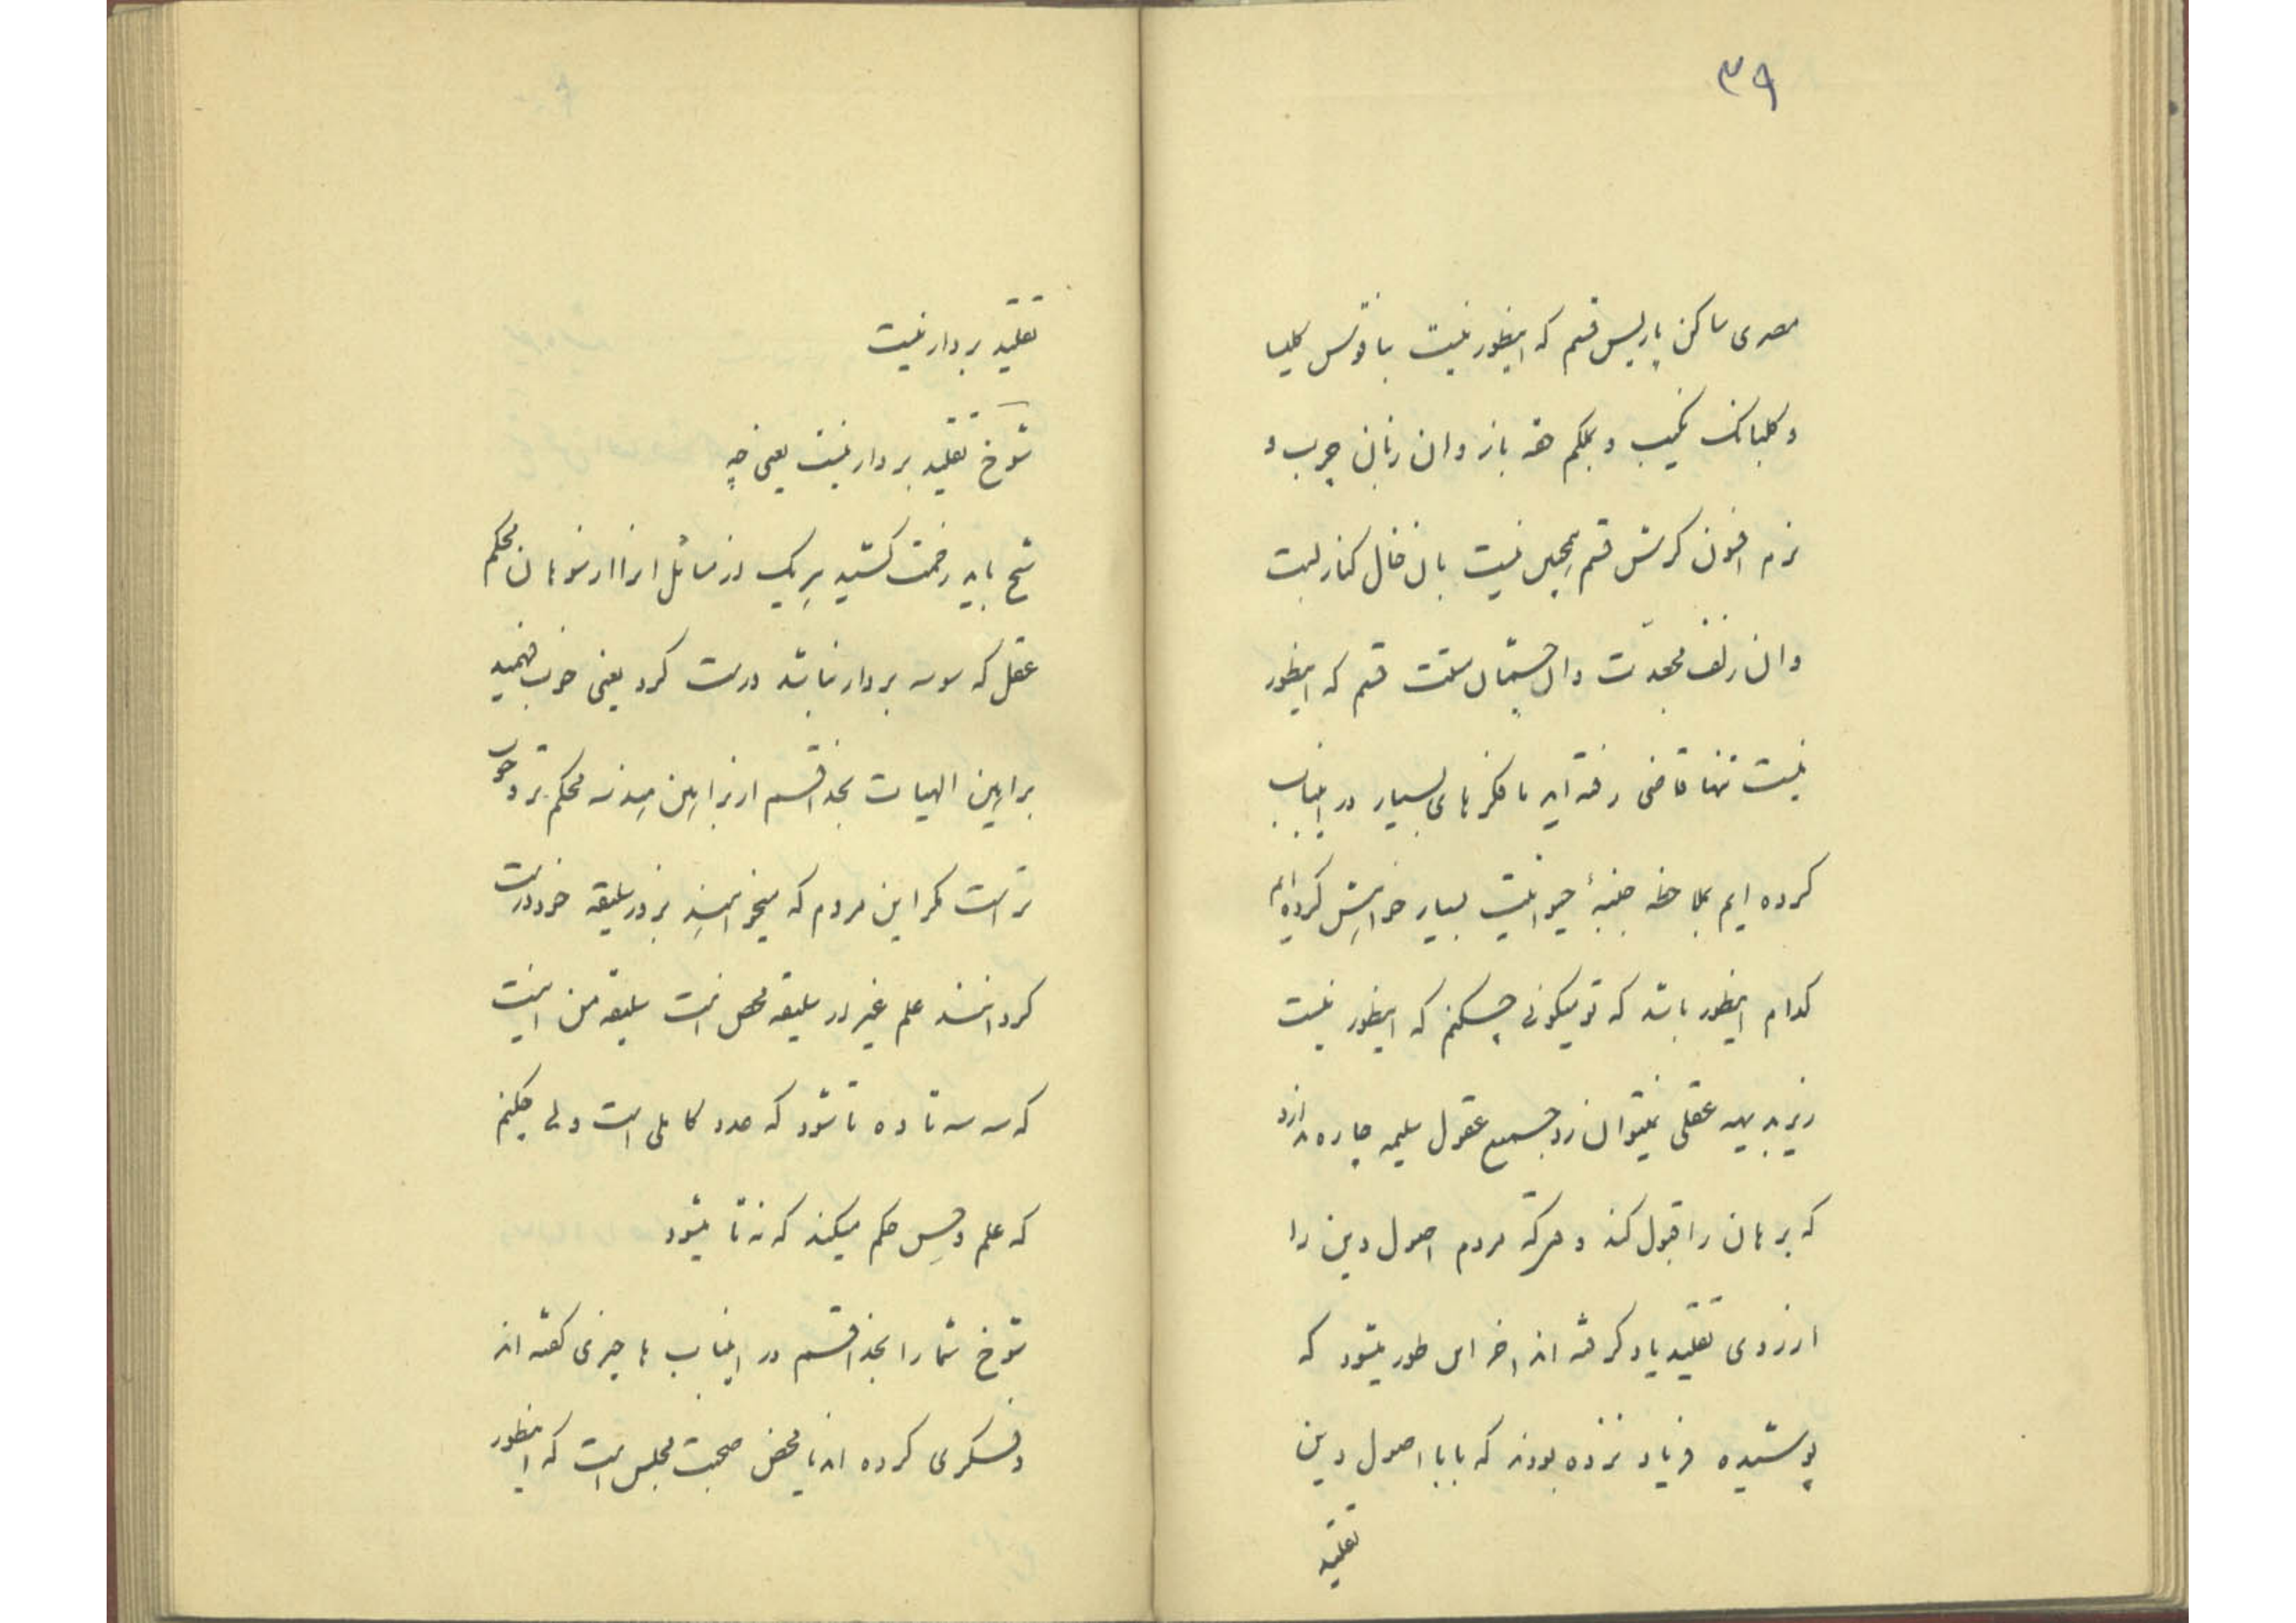 ۳۹
مصری ساکن پاریس قسم که اینطور نیست بناقوس کلیسا
و کلبانک نحیب و بلکم حقه باز و ان زبان چرب و
نرم افسون کرش قسم همچین نیست بان خال کنار لبت
وان زلف مجعدت وان چشمان مستت قسم که اینطور
نیست تنها قاضی رفته اید ما فکر های بسیار در اینباب
کرده ایم بملاحظه جنبهٔ حیوانیت بسیار خواهش کرده ایم
کدام اینطور باشد که تو میکوئی چه کنم که اینطور نیست
زیر بدیهه عقلی نمیتوان زد جمیع عقول سلیمه چاره ندارد
که برهان را قبول کند و هرکه مردم اصول دین را
از روی تقلید یاد کرفته اند اخر این طور میشود که
پوسیده فریاد نزده بودند که بابا اصول دین
تقلید
تقلید بردار نیست
شوخ تقلید بردار نیست یعنی چه
شیخ باید زحمت کشید بریک از مسائل انرا از برهان محکم
عقل که سوسه بردار نباشد درست کرد یعنی خوب فهمید
براهین الهیات بخدا قسم از براهین هندسه محکم تر و خوب
تر است مکر این مردم که میخواهند بزور سلیقه خود درست
کرد انهند علم غیر از سلیقه محض است سلیقه من اینست
که سه سه تا ده تا شود که عدد کاملی است ولی چکنم
که علم و حس حکم میکند که نه تا میشود
شوخ شما را بخدا قسم در اینباب ها چیزی کفته اند
و فکری کرده اند یا محض صحبت مجلس است که اینطور